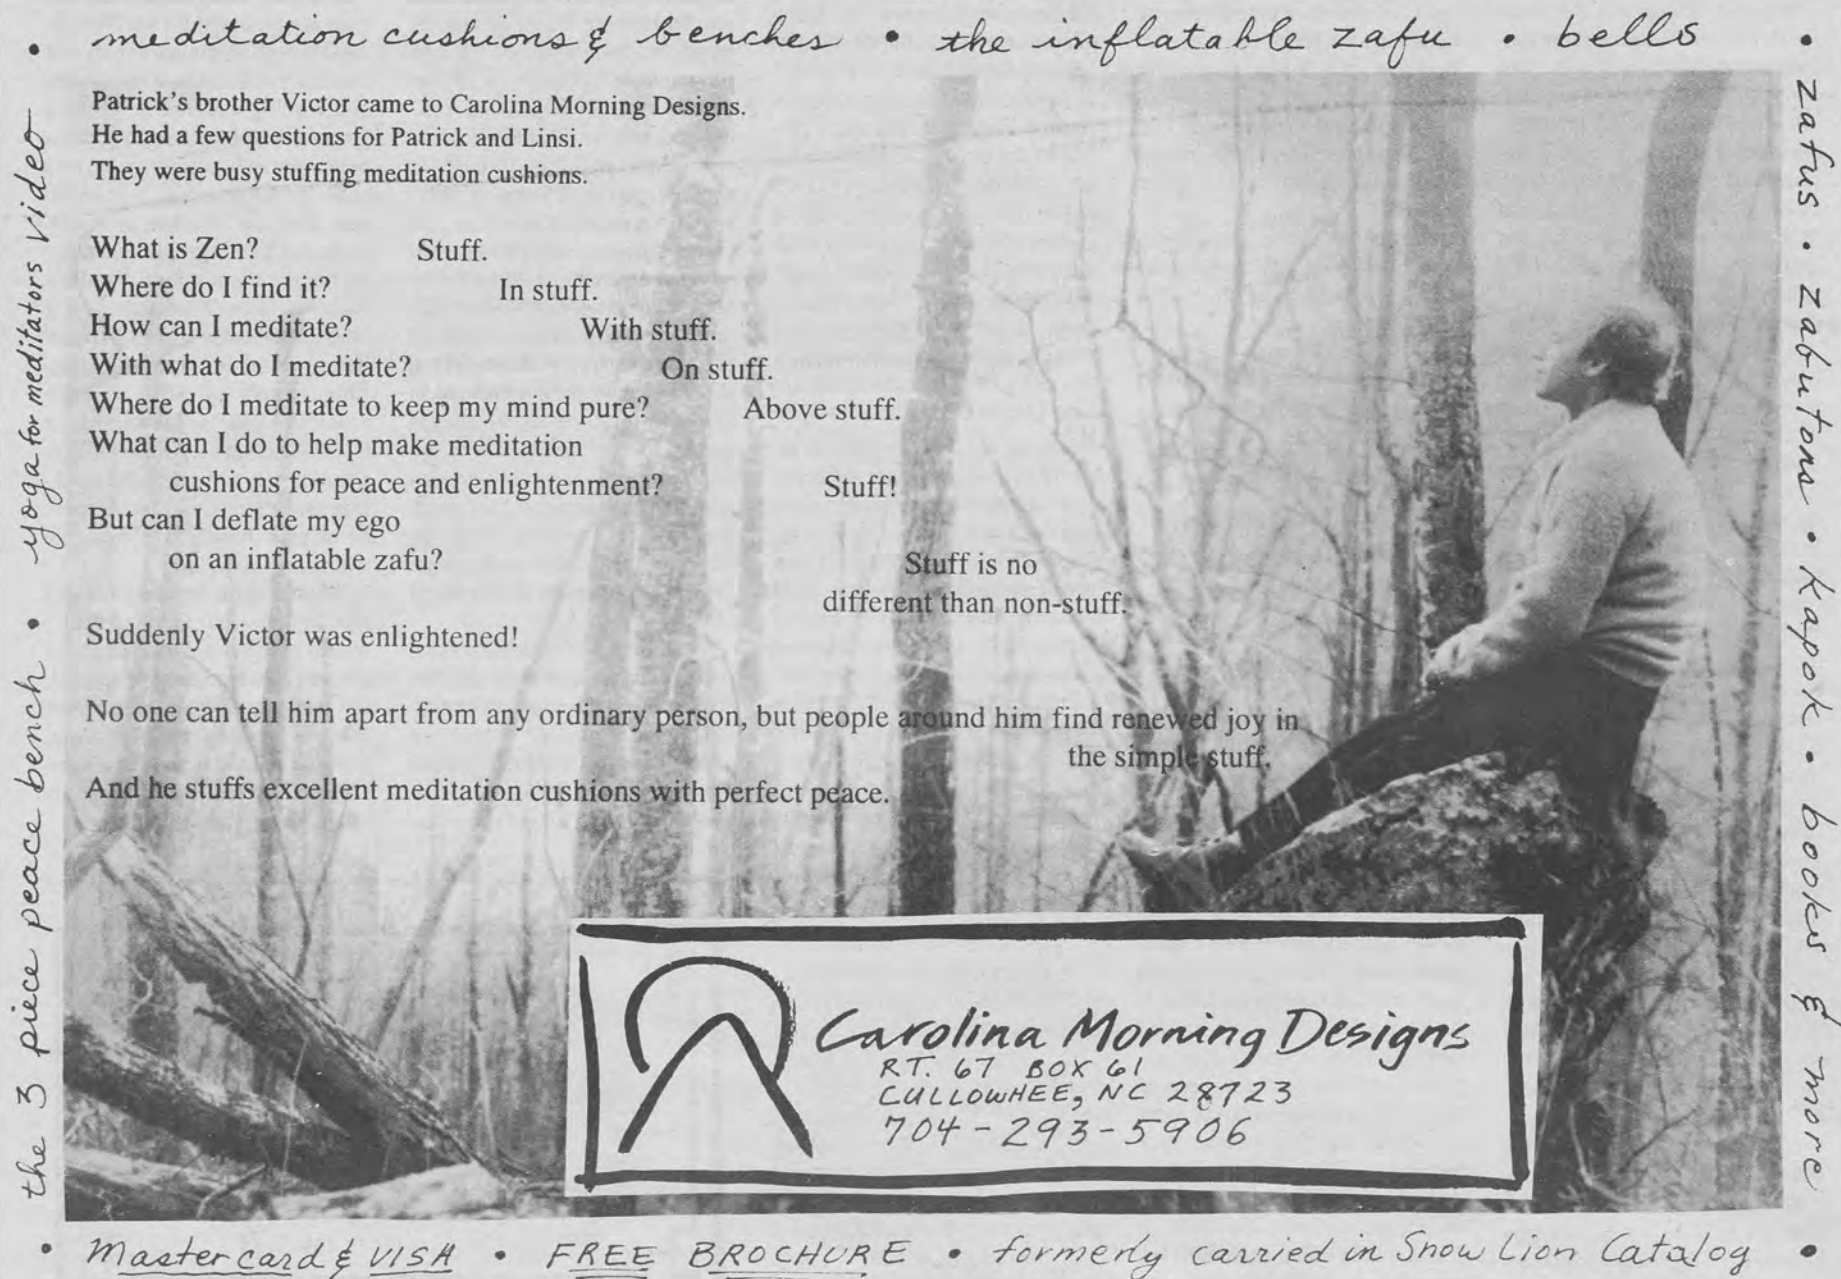 • meditation cushions & benches • the inflatable zafu • bells •
zafus • zabutons • kapok • books & more
the 3 piece peace bench • yoga for meditators video
Patrick's brother Victor came to Carolina Morning Designs.
He had a few questions for Patrick and Linsi.
They were busy stuffing meditation cushions.
What is Zen? Stuff.
Where do I find it? In stuff.
How can I meditate? With stuff.
With what do I meditate? On stuff.
Where do I meditate to keep my mind pure? Above stuff.
What can I do to help make meditation
cushions for peace and enlightenment? Stuff!
But can I deflate my ego
on an inflatable zafu? Stuff is no
different than non-stuff.
Suddenly Victor was enlightened!
No one can tell him apart from any ordinary person, but people around him find renewed joy in
the simple stuff.
And he stuffs excellent meditation cushions with perfect peace.
Carolina Morning Designs
RT. 67 BOX 61
CULLOWHEE, NC 28723
704-293-5906
• Mastercard & VISA • FREE BROCHURE • formerly carried in Snow Lion Catalog •